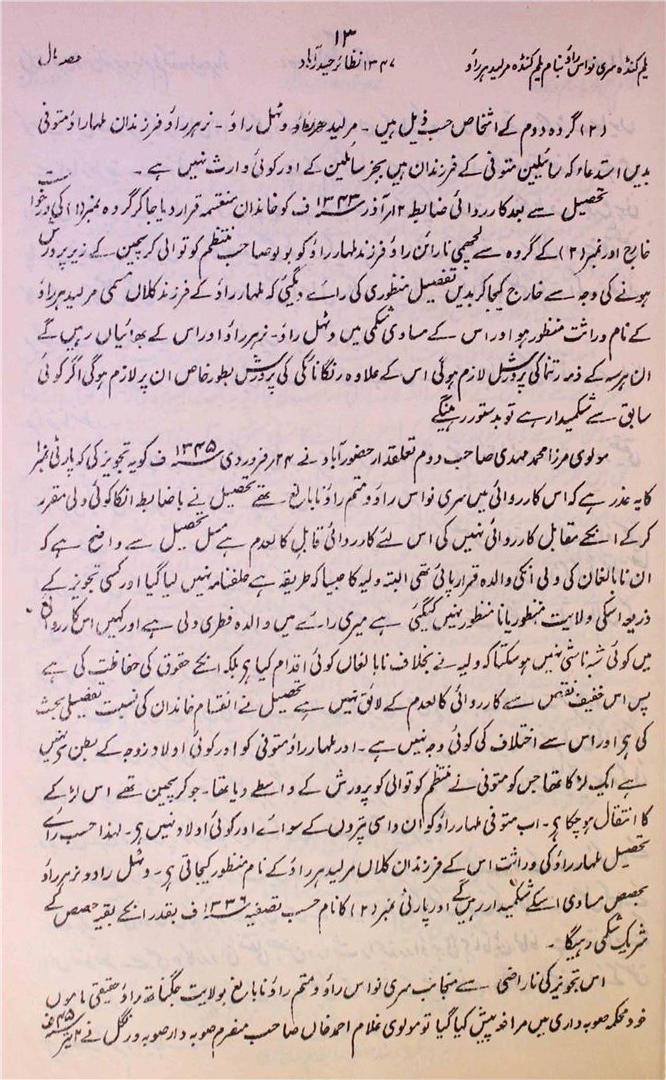 ۱۳
یلم کنڈہ سری نواس راؤ بنام یلم کنڈہ مرلیدہر راؤ ۱۳۴۷ نظائر حیدرآباد حصہ مال
(۲) گروہ دوم کے اشخاص حسب ذیل ہیں ۔ مرلیدہر راؤ وٹہل راؤ ۔ نرہر راؤ فرزندان ملہار راؤ متوفی
بدیں استدعاء کہ سائلین متوفی کے فرزندان ہیں بجز سائلین کے اور کوئی وارث نہیں ہے ۔
تحصیل سے بعد کارروائی ضابطہ ۱۲ ؍ آذر ۱۳۴۳ ف کو خاندان منقسمہ قرار دیا جاکر گروہ نمبر (۱) کی درخواست
خارج اور نمبر (۲) کے گروہ سے لچھمی نارائن راؤ فرزند ملہار راؤ کو بولو صاحب منتظم کوتوالی کرسچین کے زیر پرورش
ہونے کی وجہ سے خارج کیا جاکر بدیں تفصیل منظوری کی رائے دیگئی کہ ملہار راؤ کے فرزند کلاں مسمی مرلیدہر راؤ
کے نام وراثت منظور ہو اور اس کے مساوی شکمی میں وٹہل راؤ ۔ نرہر راؤ اور اس کے بھائیاں رہیں گے
ان ہرسہ کے ذمہ رتنما کی پرورش لازم ہوگی اس کے علاوہ رنگانائکی کی پرورش بطور خاص ان پر لازم ہوگی اگر کوئی
سابق سے شکمیدار ہے تو بدستور رہینگے
مولوی مرزا محمد مہدی صاحب دوم تعلقدار حضور آباد نے ۲۴ ؍ فروردی ۱۳۴۵ ف کو یہ تجویز کی کو پارٹی نمبر ۱
کا یہ عذر ہے کہ اس کارروائی میں سری نواس راؤ و متم راؤ نابالغ ۔ تھے تحصیل نے باضابطہ انکا کوئی ولی مقرر
کرکے انکے مقابل کارروائی نہیں کی اس لئے کارروائی قابل کالعدم ہے مثل تحصیل سے واضح ہے کہ
ان نابالغان کی ولی انکی والدہ قرار پائی تھی البتہ ولیہ کا جیسا کہ طریقہ ہے حلفنامہ نہیں لیا گیا اور کسی تجویز کے
ذریعہ اسکی ولایت منظور یا نامنظور نہیں کیگئی ہے میری رائے میں والدہ فطری ولی ہے اور کہیں اس کارروائی
میں کوئی شبہ ناشی نہیں ہوسکتا کہ ولیہ نے بخلاف نابالغاں کوئی اقدام کیا ہو بلکہ انکے حقوق کی حفاظت کی ہے
پس اس خفیف نقص سے کارروائی کالعدم کے لائق نہیں ہے تحصیل نے انقسام خاندان کی نسبت تفصیلی بحث
کی ہے اور اس سے اختلاف کی کوئی وجہ نہیں ہے ۔ اور ملہار راؤ متوفی کو اور کوئی اولاد زوجہ کے بطن سے نہیں
ہے ایک لڑکا تھا جس کو متوفی نے منتظم کوتوالی کو پرورش کے واسطے دیا تھا ۔ جو کرسچین تھے اس لڑکے
کا انتقال ہوچکا ہے ۔ اب متوفی ملہار راؤ کو ان داسی پتروں کے سوائے اور کوئی اولاد نہیں ہے ۔ لہذا حسب رائے
تحصیل ملہار راؤ کی وراثت اس کے فرزندان کلاں مرلیدہر راؤ کے نام منظور کیجاتی ہے ۔ وٹہل راؤ و نرہر راؤ
بحصص مساوی اسکے شکمیدار رہیں گے اور پارٹی نمبر (۲) کا نام حسب تصفیہ ۱۳۳۶ ف بقدر انکے بقیہ حصص کے
شریک شکمی رہیگا ۔
اس تجویز کی ناراضی سے منجانب سری نواس راؤ و متم راؤ نابالغ بولایت جگناتھ راؤ حقیقی ماموں
خود محکمہ صوبہ داری میں مرافعہ پیش کیا گیا تو مولوی غلام احمد خاں صاحب منصرم صوبہ دار صوبہ ورنگل نے